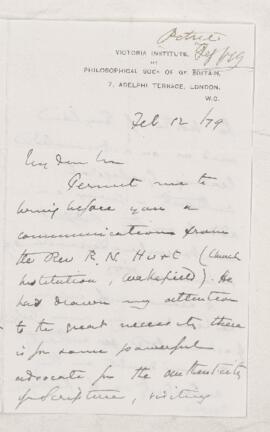 Petrie
Feb 1879
VICTORIA INSTITUTE,
OR
PHILOSOPHICAL SOCY OF GT BRITAIN,
7, ADELPHI TERRACE, LONDON,
W.C.
Feb 12/79
My dear Sir
Permit me to
bring before you a
communication from
the Rev R. N. (Church
Institution, Wakefield). He
has drawn my attention
to the great necessity there
is for some powerful
advocate for the authenticity
of Scripture, visiting